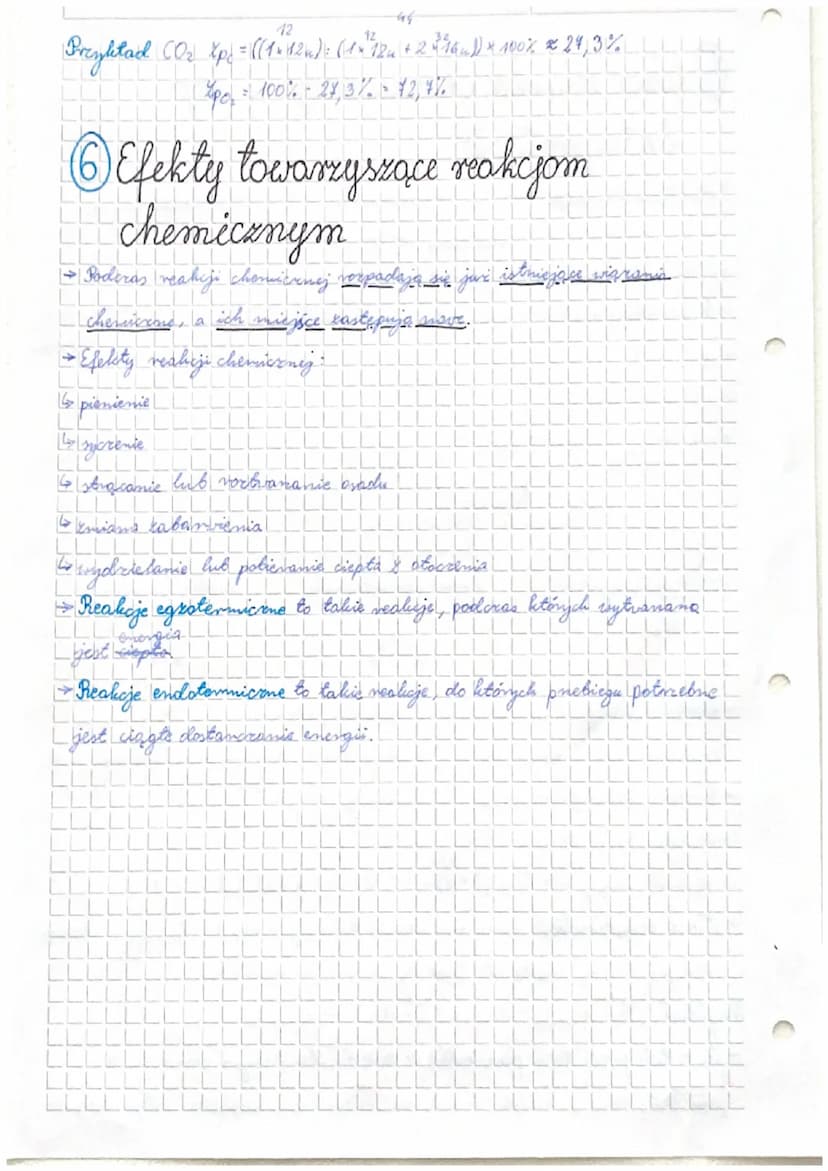 44
12 12 32
Przykład CO₂ %pC = ((1×12u):(1×12u + 2×16u))×100% ≈ 27,3%
%pO₂ = 100% - 27,3% = 72,7%
6 Efekty towarzyszące reakcjom
chemicznym
→ Podczas reakcji chemicznej rozpadają się już istniejące wiązania
chemiczne, a ich miejsce zastępują nowe.
→ Efekty reakcji chemicznej:
↳ pienienie
↳ syczenie
↳ strącanie lub roztwarzanie osadu
↳ zmiana zabarwienia
↳ wydzielanie lub pobieranie ciepła z otoczenia
→ Reakcje egzotermiczne to takie reakcje, podczas których wytwarzana
energia
jest ciepło.
→ Reakcje endotermiczne to takie reakcje, do których przebiegu potrzebne
jest ciągłe dostarczanie energii.